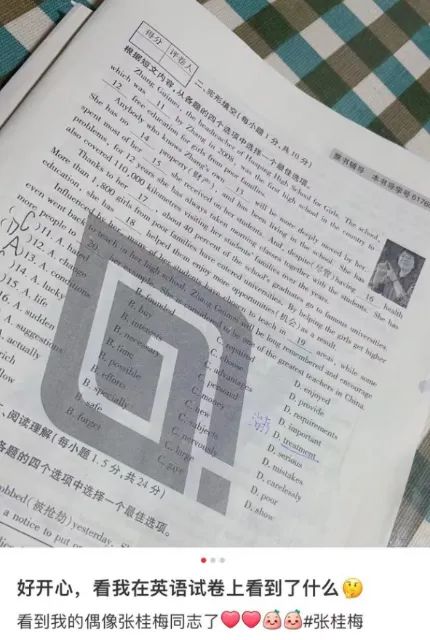 得分 评卷人
二、完形填空(每小题1分,共10分)
根据短文内容,从各题的四个选项中选择一个最佳选项。
Zhang Guimei, the headmaster of Huaping High School for Girls. The school,
which was 11 by Zhang in 2008, was the first high school in the country to
12 free education for girls from poor families.
Anybody who knows Zhang's own 13 will be more deeply moved by her.
She has no 14 property (财产), and has been living in the school. She has
spent most of her 15 she received on her students. And, despite(尽管) having 16 health
problems, for 12 years she has always taken
also covered 110,000 kilometres visiting her students' families over the years.
Thanks to her 17, about 40 percent of the school's graduates go to famous universities.
More than 1,800 girls from poor families have entered universities. By helping the girls get higher
education, she has 18 helped them enjoy more opportunities(机会) as a result
to teach in 19 areas, while some
even went back to teach at her high school. Zhang Guimei will be long remembered and encourage
more people to 20
She is considered to be one of the greatest teachers in China.
图书辅导 本书导学号
( C )11. A. B. founded C. repaired D. enjoyed
( )12. A. change B. buy C. choose D. provide
( A )13. A. conditions B. interests C. advantages D. requirements
)14. A. lucky B. necessary C. personal D. important
)15. A. life B. time C. money D. treatment
治疗
16. A. sudden B. possible C. new D. serious
A. suggestions B. efforts C. subjects D. mistakes
A. actually B. specially C. nervously D. carelessly
rich B. safe C. large D. poor
llow B. forget C. guess D. show
、阅读理解(每小题1.5分,共24分)
各题的四个选项中选择一个最佳选项。
obbed(被抢劫)yesterday.
a notice to put
好开心,看我在英语试卷上看到了什么🤔
看到我的偶像张桂梅同志了❤️❤️👶👶#张桂梅